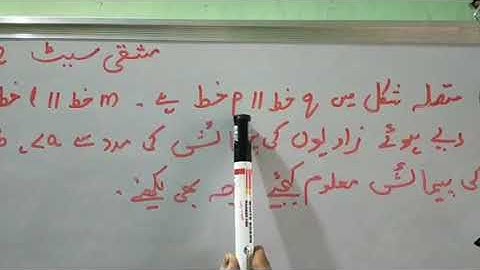 مشقی سیٹ
متصلہ شکل میں q خط || p خط ہے ۔ m خط || l خط
دیے ہوئے زاویوں کی پیمائش کی مدد سے ∠a،
کی پیمائش معلوم کیجئے بھی لکھئے۔